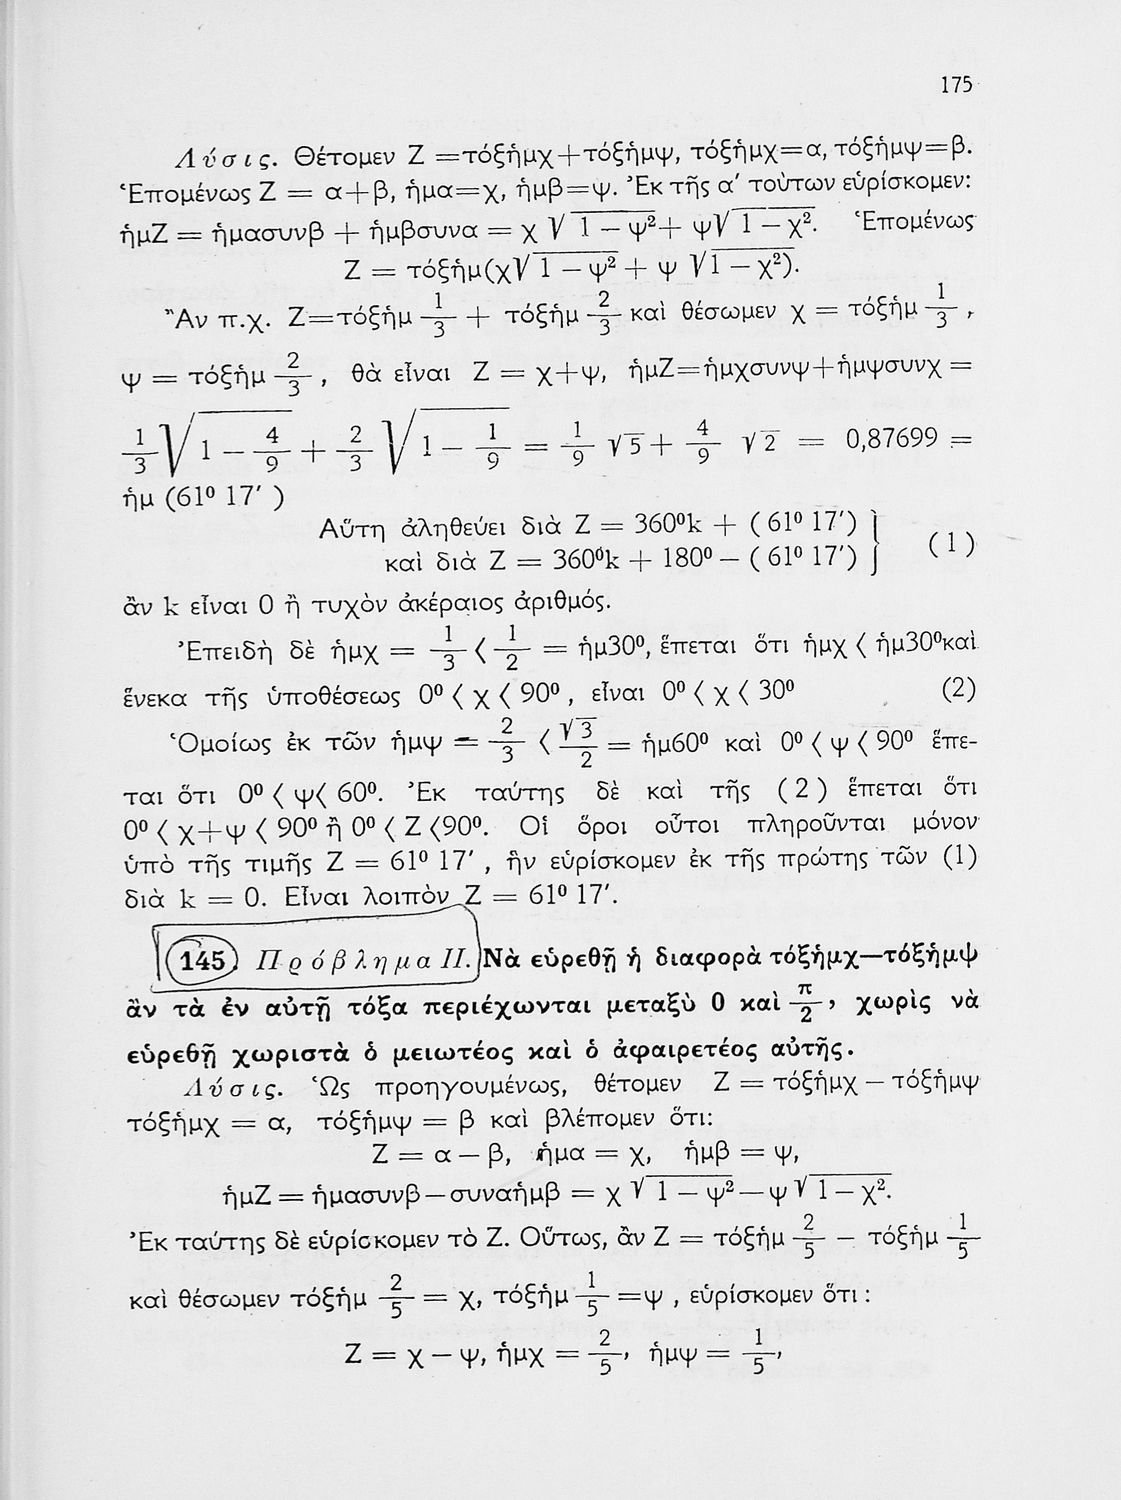 175
Λύσις. Θέτομεν Ζ =τόξἡμχ+τόξἡμψ, τόξἡμχ=α, τόξἡμψ=β.
Ἑπομένως Ζ = α+β, ἡμα=χ, ἡμβ=ψ. Ἐκ τῆς α' τούτων εὑρίσκομεν:
ἡμΖ = ἡμασυνβ + ἡμβσυνα = χ √1 − ψ² + ψ√1 − χ². Ἑπομένως
Ζ = τόξἡμ(χ√1 − ψ² + ψ √1 − χ²).
Ἂν π.χ. Ζ=τόξἡμ 1/3 + τόξἡμ 2/3 καὶ θέσωμεν χ = τόξἡμ 1/3 ,
ψ = τόξἡμ 2/3 , θὰ εἶναι Ζ = χ+ψ, ἡμΖ=ἡμχσυνψ+ἡμψσυνχ =
1/3 √1 − 4/9 + 2/3 √1 − 1/9 = 1/9 √5 + 4/9 √2 = 0,87699 =
ἡμ (61⁰ 17′ )
Αὕτη ἀληθεύει διὰ Ζ = 360⁰k + ( 61⁰ 17′) }
καὶ διὰ Ζ = 360⁰k + 180⁰ − ( 61⁰ 17′) } ( 1 )
ἂν k εἶναι 0 ἢ τυχὸν ἀκέραιος ἀριθμός.
Ἐπειδὴ δὲ ἡμχ = 1/3 < 1/2 = ἡμ30⁰, ἕπεται ὅτι ἡμχ < ἡμ30⁰καὶ
ἕνεκα τῆς ὑποθέσεως 0⁰ < χ < 90⁰ , εἶναι 0⁰ < χ < 30⁰ (2)
Ὁμοίως ἐκ τῶν ἡμψ = 2/3 < √3/2 = ἡμ60⁰ καὶ 0⁰ < ψ < 90⁰ ἕπε-
ται ὅτι 0⁰ < ψ< 60⁰. Ἐκ ταύτης δὲ καὶ τῆς ( 2 ) ἕπεται ὅτι
0⁰ < χ+ψ < 90⁰ ἢ 0⁰ < Ζ <90⁰. Οἱ ὅροι οὗτοι πληροῦνται μόνον
ὑπὸ τῆς τιμῆς Ζ = 61⁰ 17′ , ἣν εὑρίσκομεν ἐκ τῆς πρώτης τῶν (1)
διὰ k = 0. Εἶναι λοιπὸν Ζ = 61⁰ 17′.
145 Πρόβλημα ΙΙ. Νὰ εὑρεθῇ ἡ διαφορὰ τόξἡμχ—τόξἡμψ
ἂν τὰ ἐν αὐτῇ τόξα περιέχωνται μεταξὺ 0 καὶ π/2 , χωρὶς νὰ
εὑρεθῇ χωριστὰ ὁ μειωτέος καὶ ὁ ἀφαιρετέος αὐτῆς.
Λύσις. Ὡς προηγουμένως, θέτομεν Ζ = τόξἡμχ − τόξἡμψ
τόξἡμχ = α, τόξἡμψ = β καὶ βλέπομεν ὅτι:
Ζ = α − β, ἡμα = χ, ἡμβ = ψ,
ἡμΖ = ἡμασυνβ−συναἡμβ = χ √1 − ψ² − ψ √1 − χ².
Ἐκ ταύτης δὲ εὑρίσκομεν τὸ Ζ. Οὕτως, ἂν Ζ = τόξἡμ 2/5 − τόξἡμ 1/5
καὶ θέσωμεν τόξἡμ 2/5 = χ, τόξἡμ 1/5 =ψ , εὑρίσκομεν ὅτι :
Ζ = χ − ψ, ἡμχ = 2/5, ἡμψ = 1/5,